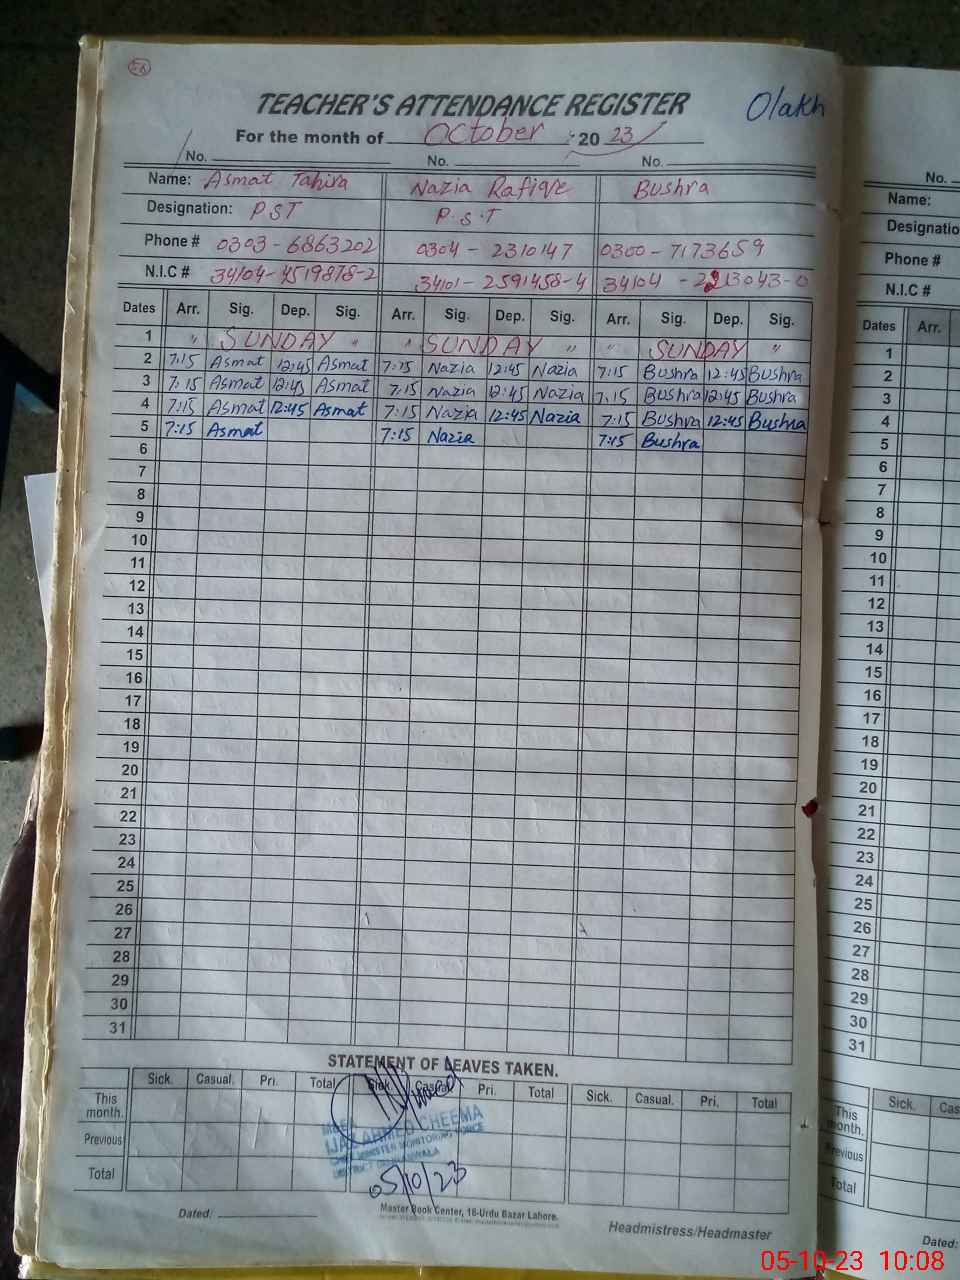 56
TEACHER'S ATTENDANCE REGISTER Olakh
For the month of October 20 23
No. No. No.
Name: Asmat Tahira Nazia Rafique Bushra
Designation: PST P.S.T
Phone # 0303-6863202 0304-2310147 0300-7173659
N.I.C # 34104-4519878-2 34101-2591458-4 34104-2213043-0
Dates Arr. Sig. Dep. Sig. Arr. Sig. Dep. Sig. Arr. Sig. Dep. Sig.
1 " SUNDAY " " SUNDAY " " SUNDAY "
2 7:15 Asmat 12:45 Asmat 7:15 Nazia 12:45 Nazia 7:15 Bushra 12:45 Bushra
3 7:15 Asmat 12:45 Asmat 7:15 Nazia 12:45 Nazia 7:15 Bushra 12:45 Bushra
4 7:15 Asmat 12:45 Asmat 7:15 Nazia 12:45 Nazia 7:15 Bushra 12:45 Bushra
5 7:15 Asmat 7:15 Nazia 7:15 Bushra
6
7
8
9
10
11
12
13
14
15
16
17
18
19
20
21
22
23
24
25
26
27
28
29
30
31
STATEMENT OF LEAVES TAKEN.
Sick. Casual. Pri. Total Sick. Casual. Pri. Total Sick. Casual. Pri. Total
This month.
Previous
Total
MEA
IJAZ AHMED CHEEMA
CHIEF MINISTER MONITORING FORCE
DISTRICT GUJRANWALA
05/10/23
Dated:
Master Book Center, 16-Urdu Bazar Lahore.
Headmistress/Headmaster
No.
Name:
Designatio
Phone #
N.I.C #
Dates Arr.
1
2
3
4
5
6
7
8
9
10
11
12
13
14
15
16
17
18
19
20
21
22
23
24
25
26
27
28
29
30
31
Sick. Cas
This month.
Previous
Total
Dated:
05-10-23 10:08